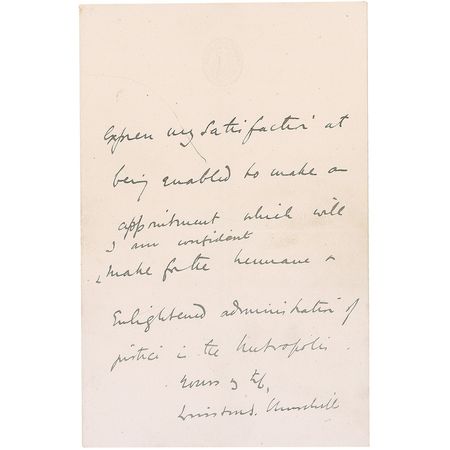 express my satisfaction at
being enabled to make an
appointment which will
I am confident
make for the humane &
Enlightened administration of
justice in the Metropolis.
Yours
Winston S. Churchill